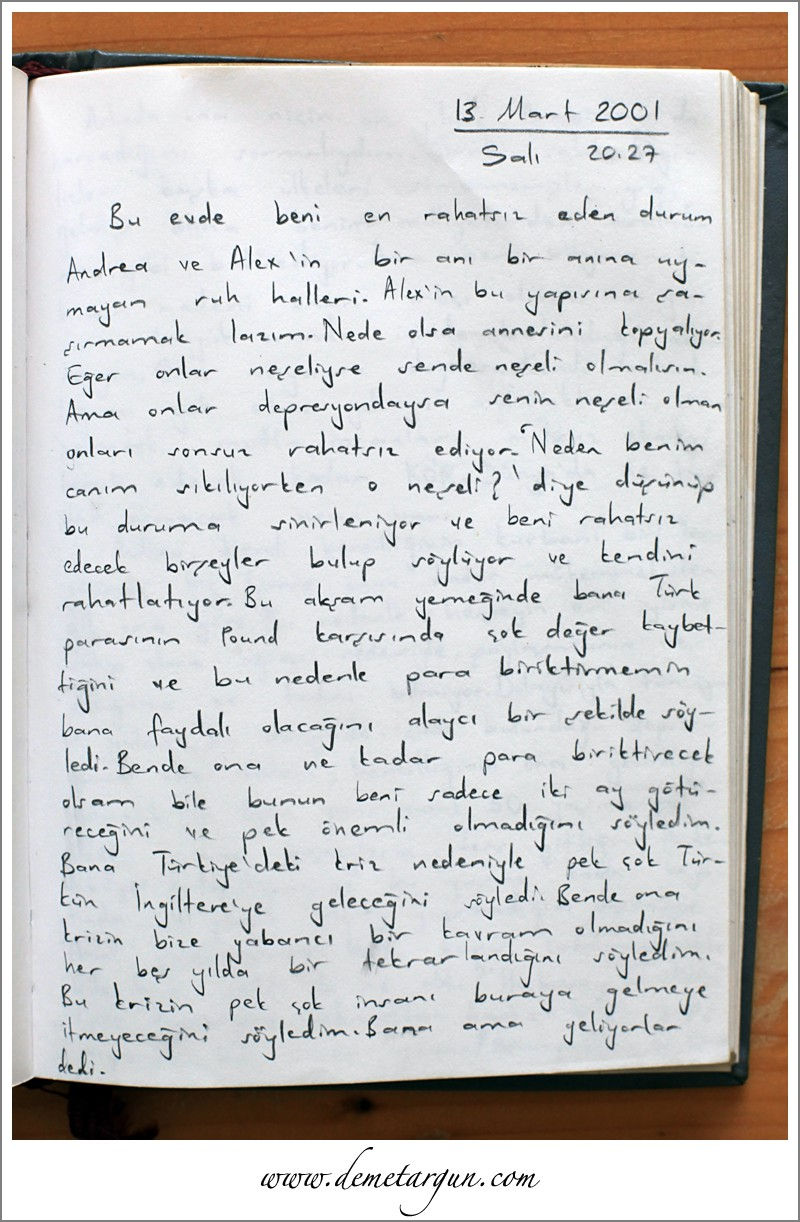 13. Mart 2001
Salı 20.27
Bu evde beni en rahatsız eden durum
Andrea ve Alex'in bir anı bir anına uy-
mayan ruh halleri. Alex'in bu yapısına şa-
şırmamak lazım. Nede olsa annesini kopyalıyor.
Eğer onlar neşeliyse sende neşeli olmalısın.
Ama onlar depresyondaysa senin neşeli olman
onları sonsuz rahatsız ediyor. "Neden benim
canım sıkılıyorken o neşeli?" diye düşünüp
bu duruma sinirleniyor ve beni rahatsız
edecek birşeyler bulup söylüyor ve kendini
rahatlatıyor. Bu akşam yemeğinde bana Türk
parasının Pound karşısında çok değer kaybet-
tiğini ve bu nedenle para biriktirmemin
bana faydalı olacağını alaycı bir şekilde söy-
ledi. Bende ona ne kadar para biriktirecek
olsam bile bunun beni sadece iki ay götü-
receğini ve pek önemli olmadığını söyledim.
Bana Türkiye'deki kriz nedeniyle pek çok Tür-
kün İngiltere'ye geleceğini söyledi. Bende ona
krizin bize yabancı bir kavram olmadığını
her beş yılda bir tekrarlandığını söyledim.
Bu krizin pek çok insanı buraya gelmeye
itmeyeceğini söyledim. Bana ama geliyorlar
dedi.
www.demetargun.com